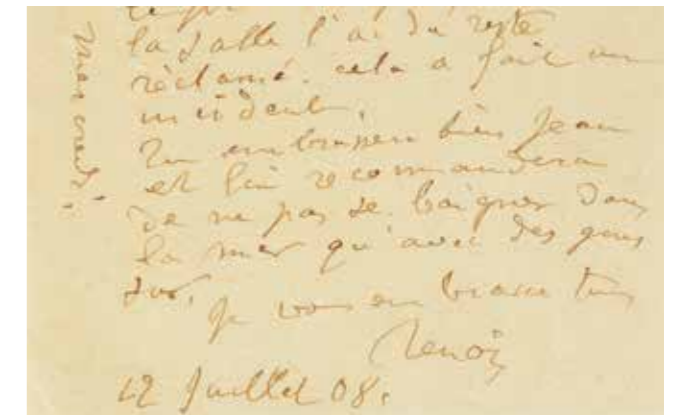 la salle l'a du reste
réclamé. cela a fait un
incident.
Tu embrassera bien Jean
et lui recommandera
de ne pas se baigner dans
la mer qu'avec des gens
sur.
Je vous embrasse tous
Renoir
12 Juillet 08.
mercredi